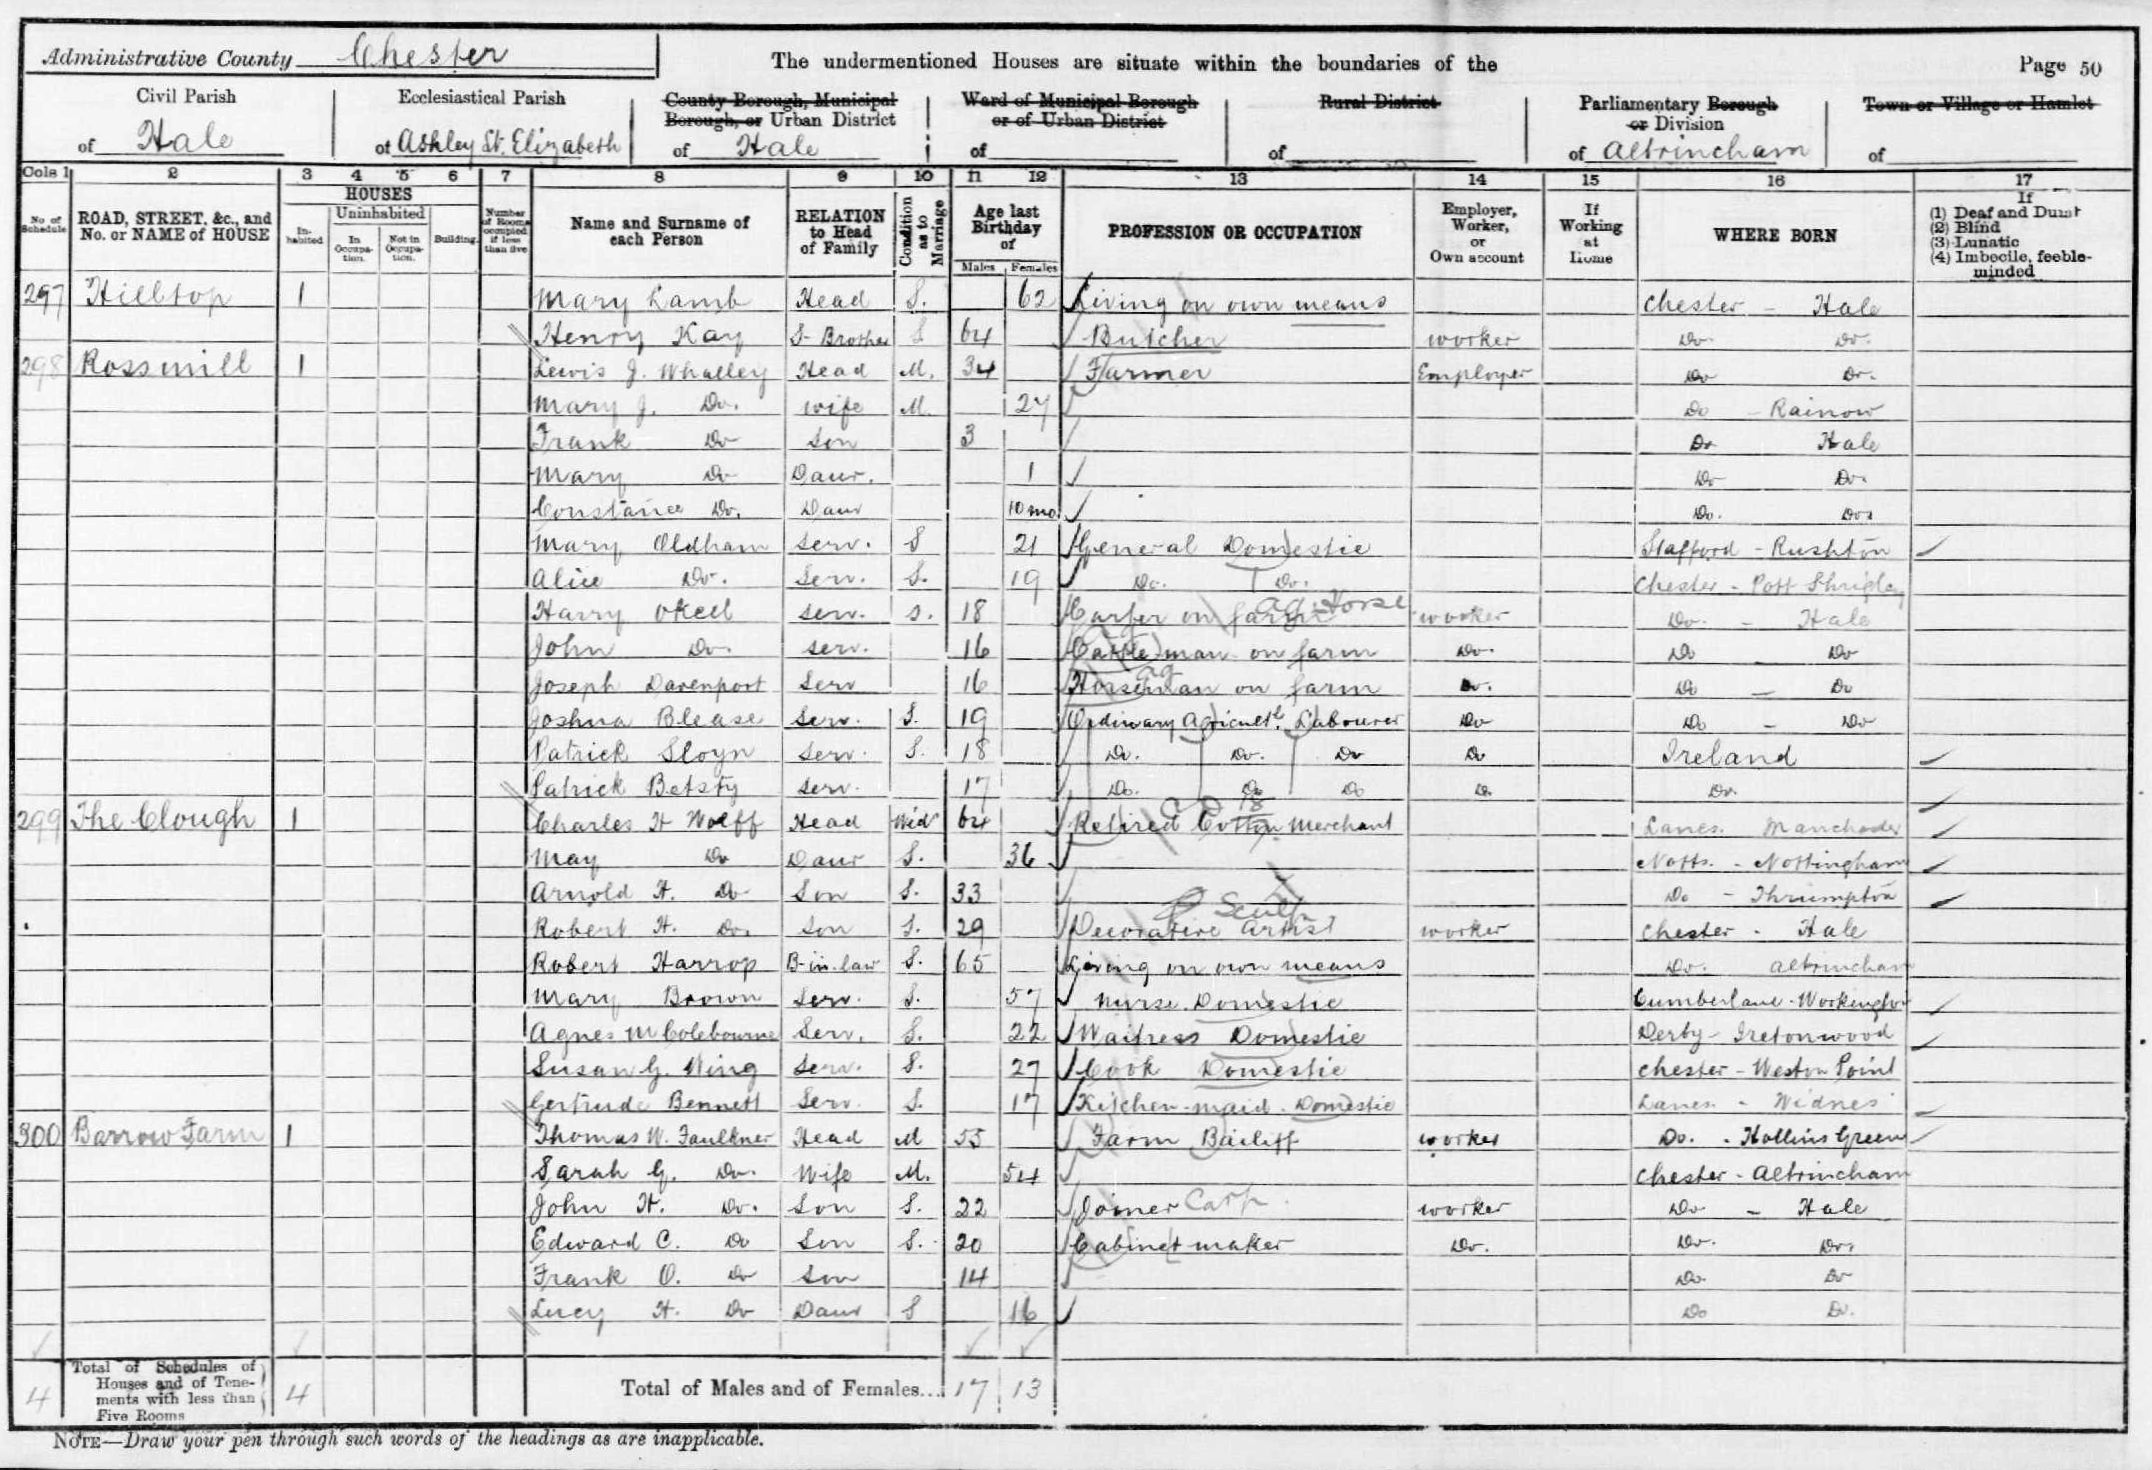 Administrative County Chester
The undermentioned Houses are situate within the boundaries of the
Page 50
Civil Parish of Hale
Ecclesiastical Parish of Ashley St. Elizabeth
County Borough, Municipal Borough, or Urban District of Hale
Ward of Municipal Borough or of Urban District of
Rural District of
Parliamentary Borough or Division of Altrincham
Town or Village or Hamlet of
Cols 1 2 3 4 5 6 7 8 9 10 11 12 13 14 15 16 17
No of Schedule
ROAD, STREET, &c., and No. or NAME of HOUSE
HOUSES
Inhabited
Uninhabited
In Occupation.
Not in Occupation.
Building
Number of Rooms occupied if less than five
Name and Surname of each Person
RELATION to Head of Family
Condition as to Marriage
Age last Birthday of
Males
Females
PROFESSION OR OCCUPATION
Employer, Worker, or Own account
If Working at Home
WHERE BORN
If
(1) Deaf and Dumb
(2) Blind
(3) Lunatic
(4) Imbecile, feeble-minded
297 Hilltop 1 Mary Lamb Head S. 62 Living on own means Chester - Hale
Henry Kay S- Brother S 64 Butcher worker Do. Do.
298 Rossmill 1 Lewis J. Whalley Head M. 34 Farmer Employer Do Do.
Mary J. Do. wife M. 27 Do - Rainow
Frank Do Son 3 Do Hale
Mary Do Daur. 1 Do Do.
Constance Do. Daur 10 mo. Do. Do.
Mary Oldham Serv. S 21 General Domestic Stafford - Rushton
Alice Do. Serv. S. 19 Do. Do. Chester - Pott Shrigley
Harry Okell serv. S. 18 Carter on farm ag Horse worker Do. - Hale
John Do. serv. 16 Cattle-man on farm Do. Do Do
Joseph Davenport Serv 16 Horseman on farm ag Do. Do - Do
Joshua Blease Serv. S. 19 Ordinary Agricultl. Labourer Do Do - Do
Patrick Sloyn Serv. S. 18 Do. Do. Do Do Ireland
Patrick Betsty serv. 17 Do. Do Do Do. Do.
299 The Clough 1 Charles H Wolff Head Widr 64 Retired Cotton Merchant Lancs. Manchester
May Do Daur S. 36 Notts. - Nottingham
Arnold H. Do Son S. 33 Do - Thrumpton
Robert H. Do. Son S. 29 Decorative Artist Sculp worker Chester - Hale
Robert Harrop B-in-law S. 65 Living on own means Do. Altrincham
Mary Brown Serv. S. 57 Nurse. Domestic Cumberland - Workington
Agnes M Colebourne Serv. S. 22 Waitress Domestic Derby - Iretonwood
Susan G. Wing Serv. S. 27 Cook Domestic Chester - Weston Point
Gertrude Bennett Serv. S. 17 Kitchen-maid. Domestic Lancs. - Widnes
300 Barrow Farm 1 Thomas W. Faulkner Head M 55 Farm Bailiff worker Do. - Hollins Green
Sarah G. Do. Wife M. 54 Chester - Altrincham
John H. Do. Son S. 22 Joiner Carp worker Do - Hale
Edward C. Do Son S. 20 Cabinet maker Do. Do. Do.
Frank O. Do Son 14 Do. Do
Lucy H. Do Daur S 16 Do Do.
4 Total of Schedules of Houses and of Tenements with less than Five Rooms 4 Total of Males and of Females... 17 13
NOTE—Draw your pen through such words of the headings as are inapplicable.